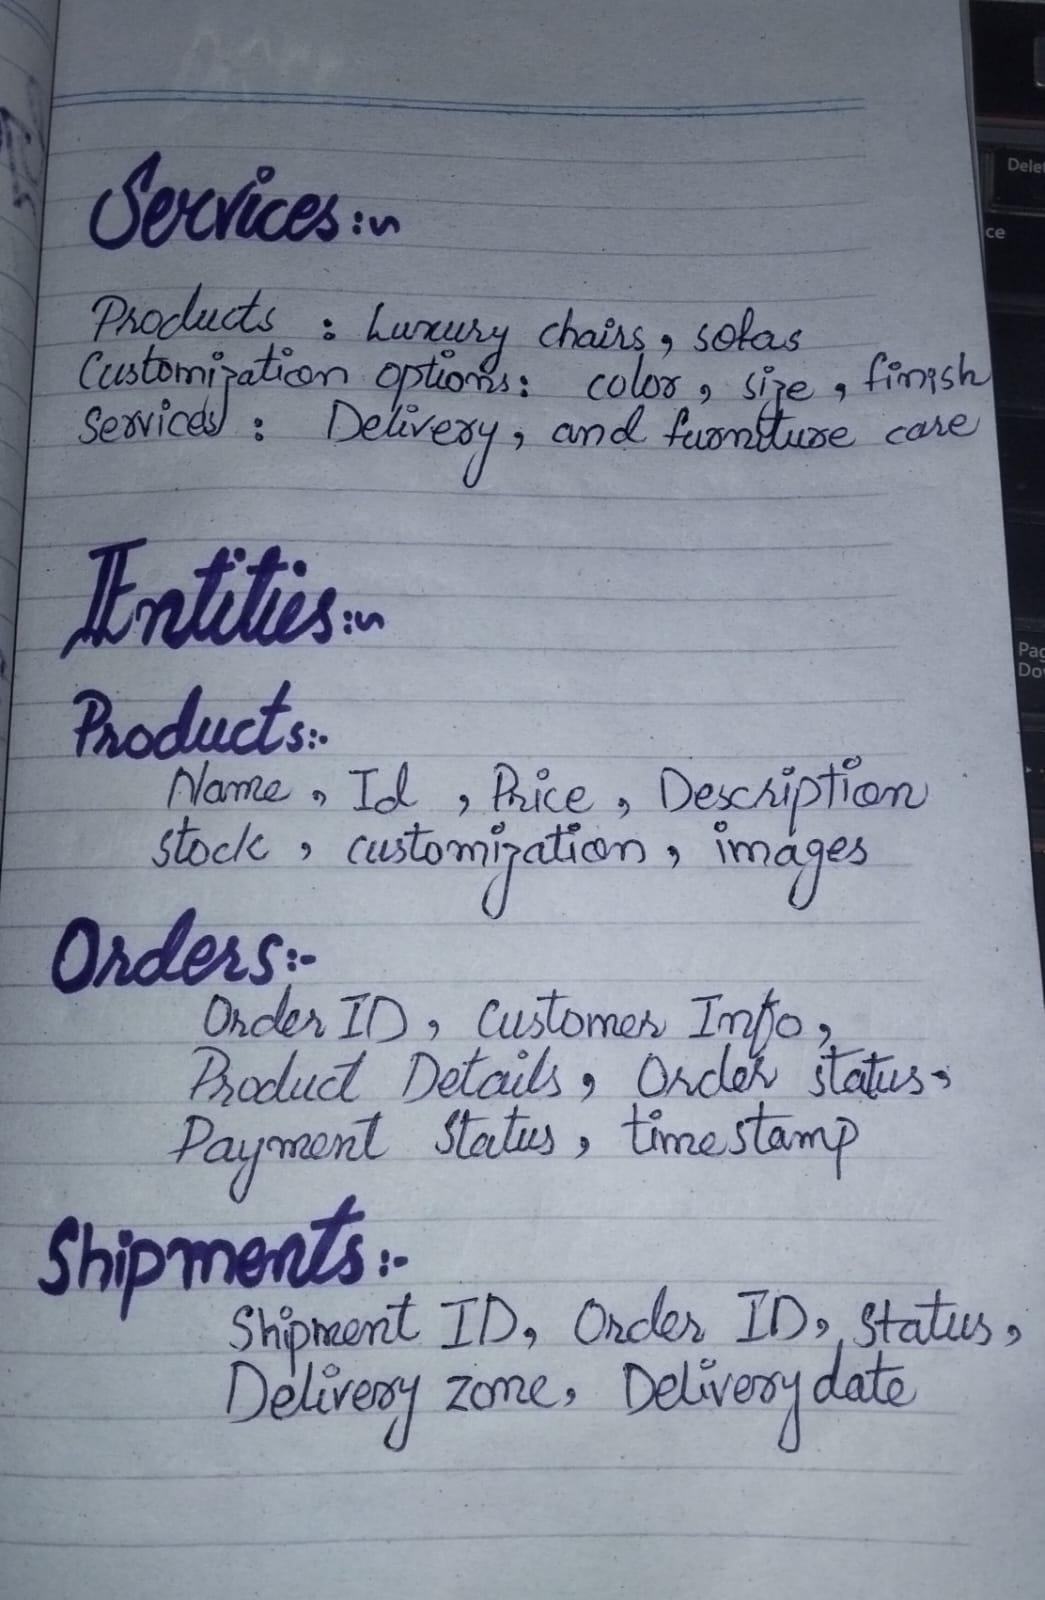 Services:~
Products : Luxury chairs, sofas
Customization options: color, size, finish
Services : Delivery, and furniture care
Entities:~
Products:-
Name, Id, Price, Description
stock, customization, images
Orders:-
Order ID, Customer Info,
Product Details, Order status,
Payment Status, timestamp
Shipments:-
Shipment ID, Order ID, Status,
Delivery zone, Delivery date